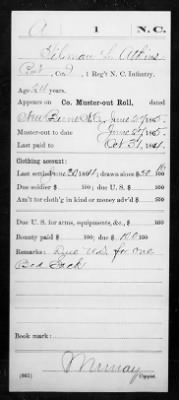 A 1 N.C.
Tilman L. Atkins
Pvt, Co. , 1 Reg't N. C. Infantry.
Age 24 years.
Appears on Co. Muster-out Roll, dated
New Berne N.C., June 25, 1865.
Muster-out to date June 25, 1865.
Last paid to Oct 31, 1864.
Clothing account:
Last settled June 30, 1864; drawn since $ 50 100
Due soldier $ 100; due U. S. $ 100
Am't for cloth'g in kind or money adv'd $ 100
Due U. S. for arms, equipments, &c., $ 100
Bounty paid $ 100; due $ 100 100
Remarks: Due U.S. for one
Bed Sack
Book mark:
Murray
Copyist.